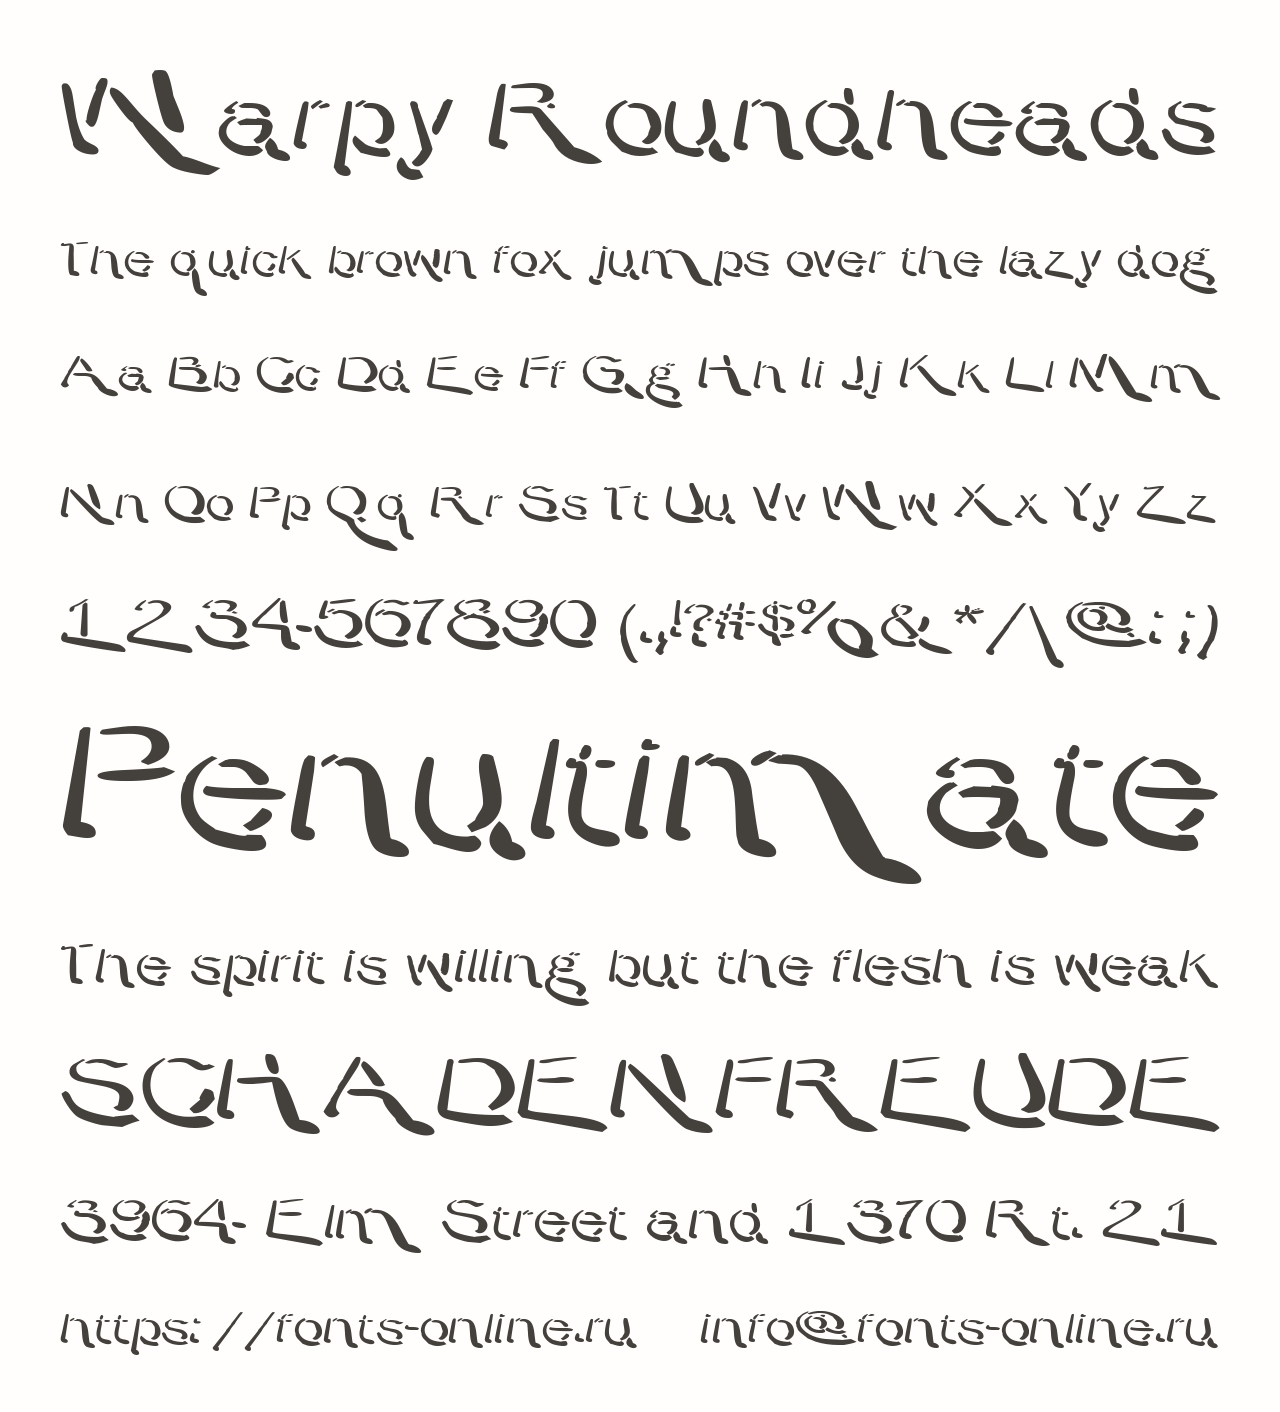 Warpy Roundheads
The quick brown fox jumps over the lazy dog
Aa Bb Cc Dd Ee Ff Gg Hh Ii Jj Kk Ll Mm
Nn Oo Pp Qq Rr Ss Tt Uu Vv Ww Xx Yy Zz
1234567890 (.,!?#$%&*/\@:;)
Penultimate
The spirit is willing but the flesh is weak
SCHADENFREUDE
3964 Elm Street and 1370 Rt. 21
https://fonts-online.ru info@fonts-online.ru